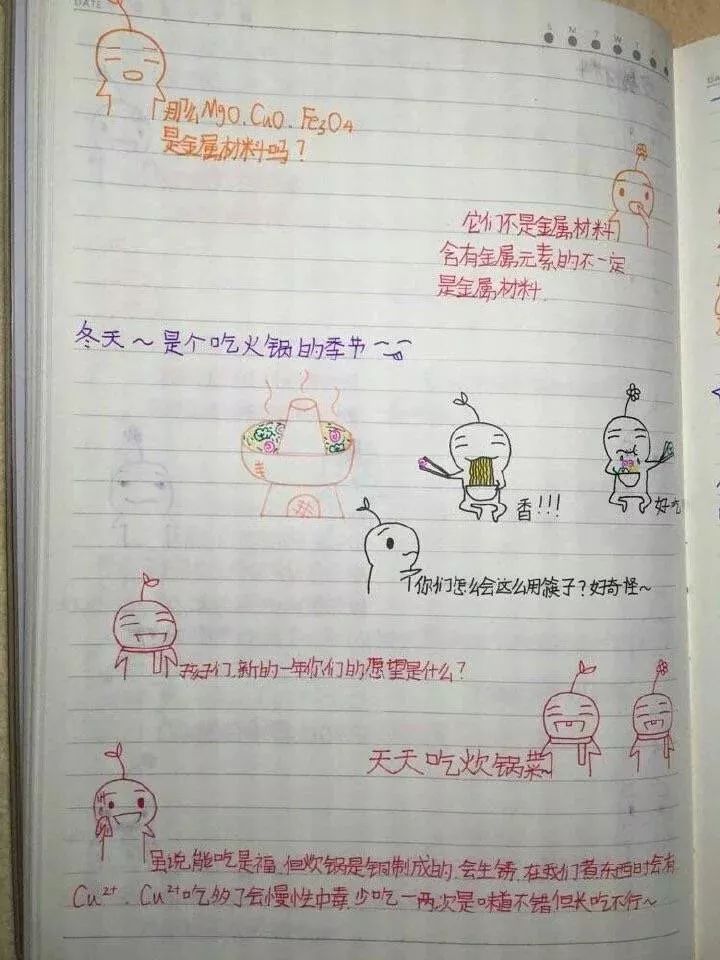 DATE
S M T W T F
那么MgO、CuO、Fe₃O₄
是金属材料吗？
它们不是金属材料
含有金属元素的不一定
是金属材料
冬天～是个吃火锅的季节
香!!!
好吃
你们怎么会这么用筷子？好奇怪～
孩子们，新的一年你们的愿望是什么？
天天吃炊锅菜～
虽说能吃是福，但炊锅是铜制成的，会生锈，在我们煮东西时会有
Cu²⁺，Cu²⁺吃够了会慢性中毒，少吃一两次是味道不错但长吃不行～